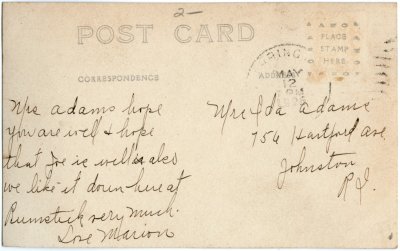 2-
POST CARD
AZO
PLACE
STAMP
HERE
AZO
CORRESPONDENCE
ADDRESS
MAY
12
PM
Mrs adams hope
you are well & hope
that Joe is well is also
we like it down here at
Rumstick very much.
Love Marion
Mrs Ida adams
756 Hartford ave
Johnston
R.I.